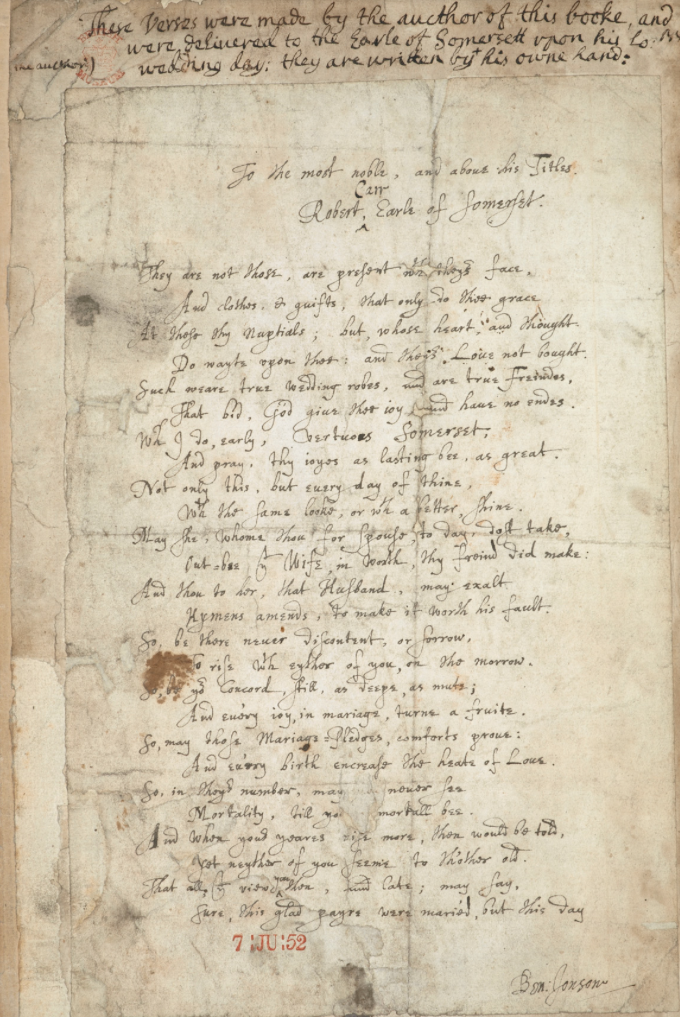 These Verses were made by the aucthor of this booke, and
were delivered to the Earle of Somersett vpon his Lo:
wedding day: they are written by his owne hand:
the aucthor)
To the most noble, and aboue his Titles.
Carr
Robert, Earle of Somerset.
They are not those, are present wth theyr face,
And clothes, & guifts, that only do thee grace
At these thy Nuptials; but, whose heart, and thought
Do wayte vpon thee: and theyr Loue not bought.
Such weare true wedding robes, and are true Freindes,
That bid, God giue thee ioy, and haue no endes.
Wch I do, early, Vertuous Somerset,
And pray, thy ioyes as lasting bee, as great.
Not only this, but euery day of thine,
Wth the same looke, or wth a better, shine.
May she, whome thou for spouse, to day, dost take,
Out-bee yt Wife, in worth, thy freind did make:
And thou to her, that Husband, may exalt
Hymens amends, to make it worth his fault.
So, be there neuer discontent, or sorrow,
To rise wth eyther of you, on the morrow.
So, be yor Concord, still, as deepe, as mute;
And euery ioy, in mariage, turne a fruite.
So, may those Mariage-Pledges, comforts proue:
And euery birth encrease the heate of Loue.
So, in theyr number, may neuer see
Mortality, till you mortall bee.
And when your yeares rise more, then would be told,
Yet neyther of you seeme to th'other old.
That all, yt view you then, and late; may say,
Sure, this glad payre were maried, but this day
7 JU 52
Ben: Jonson